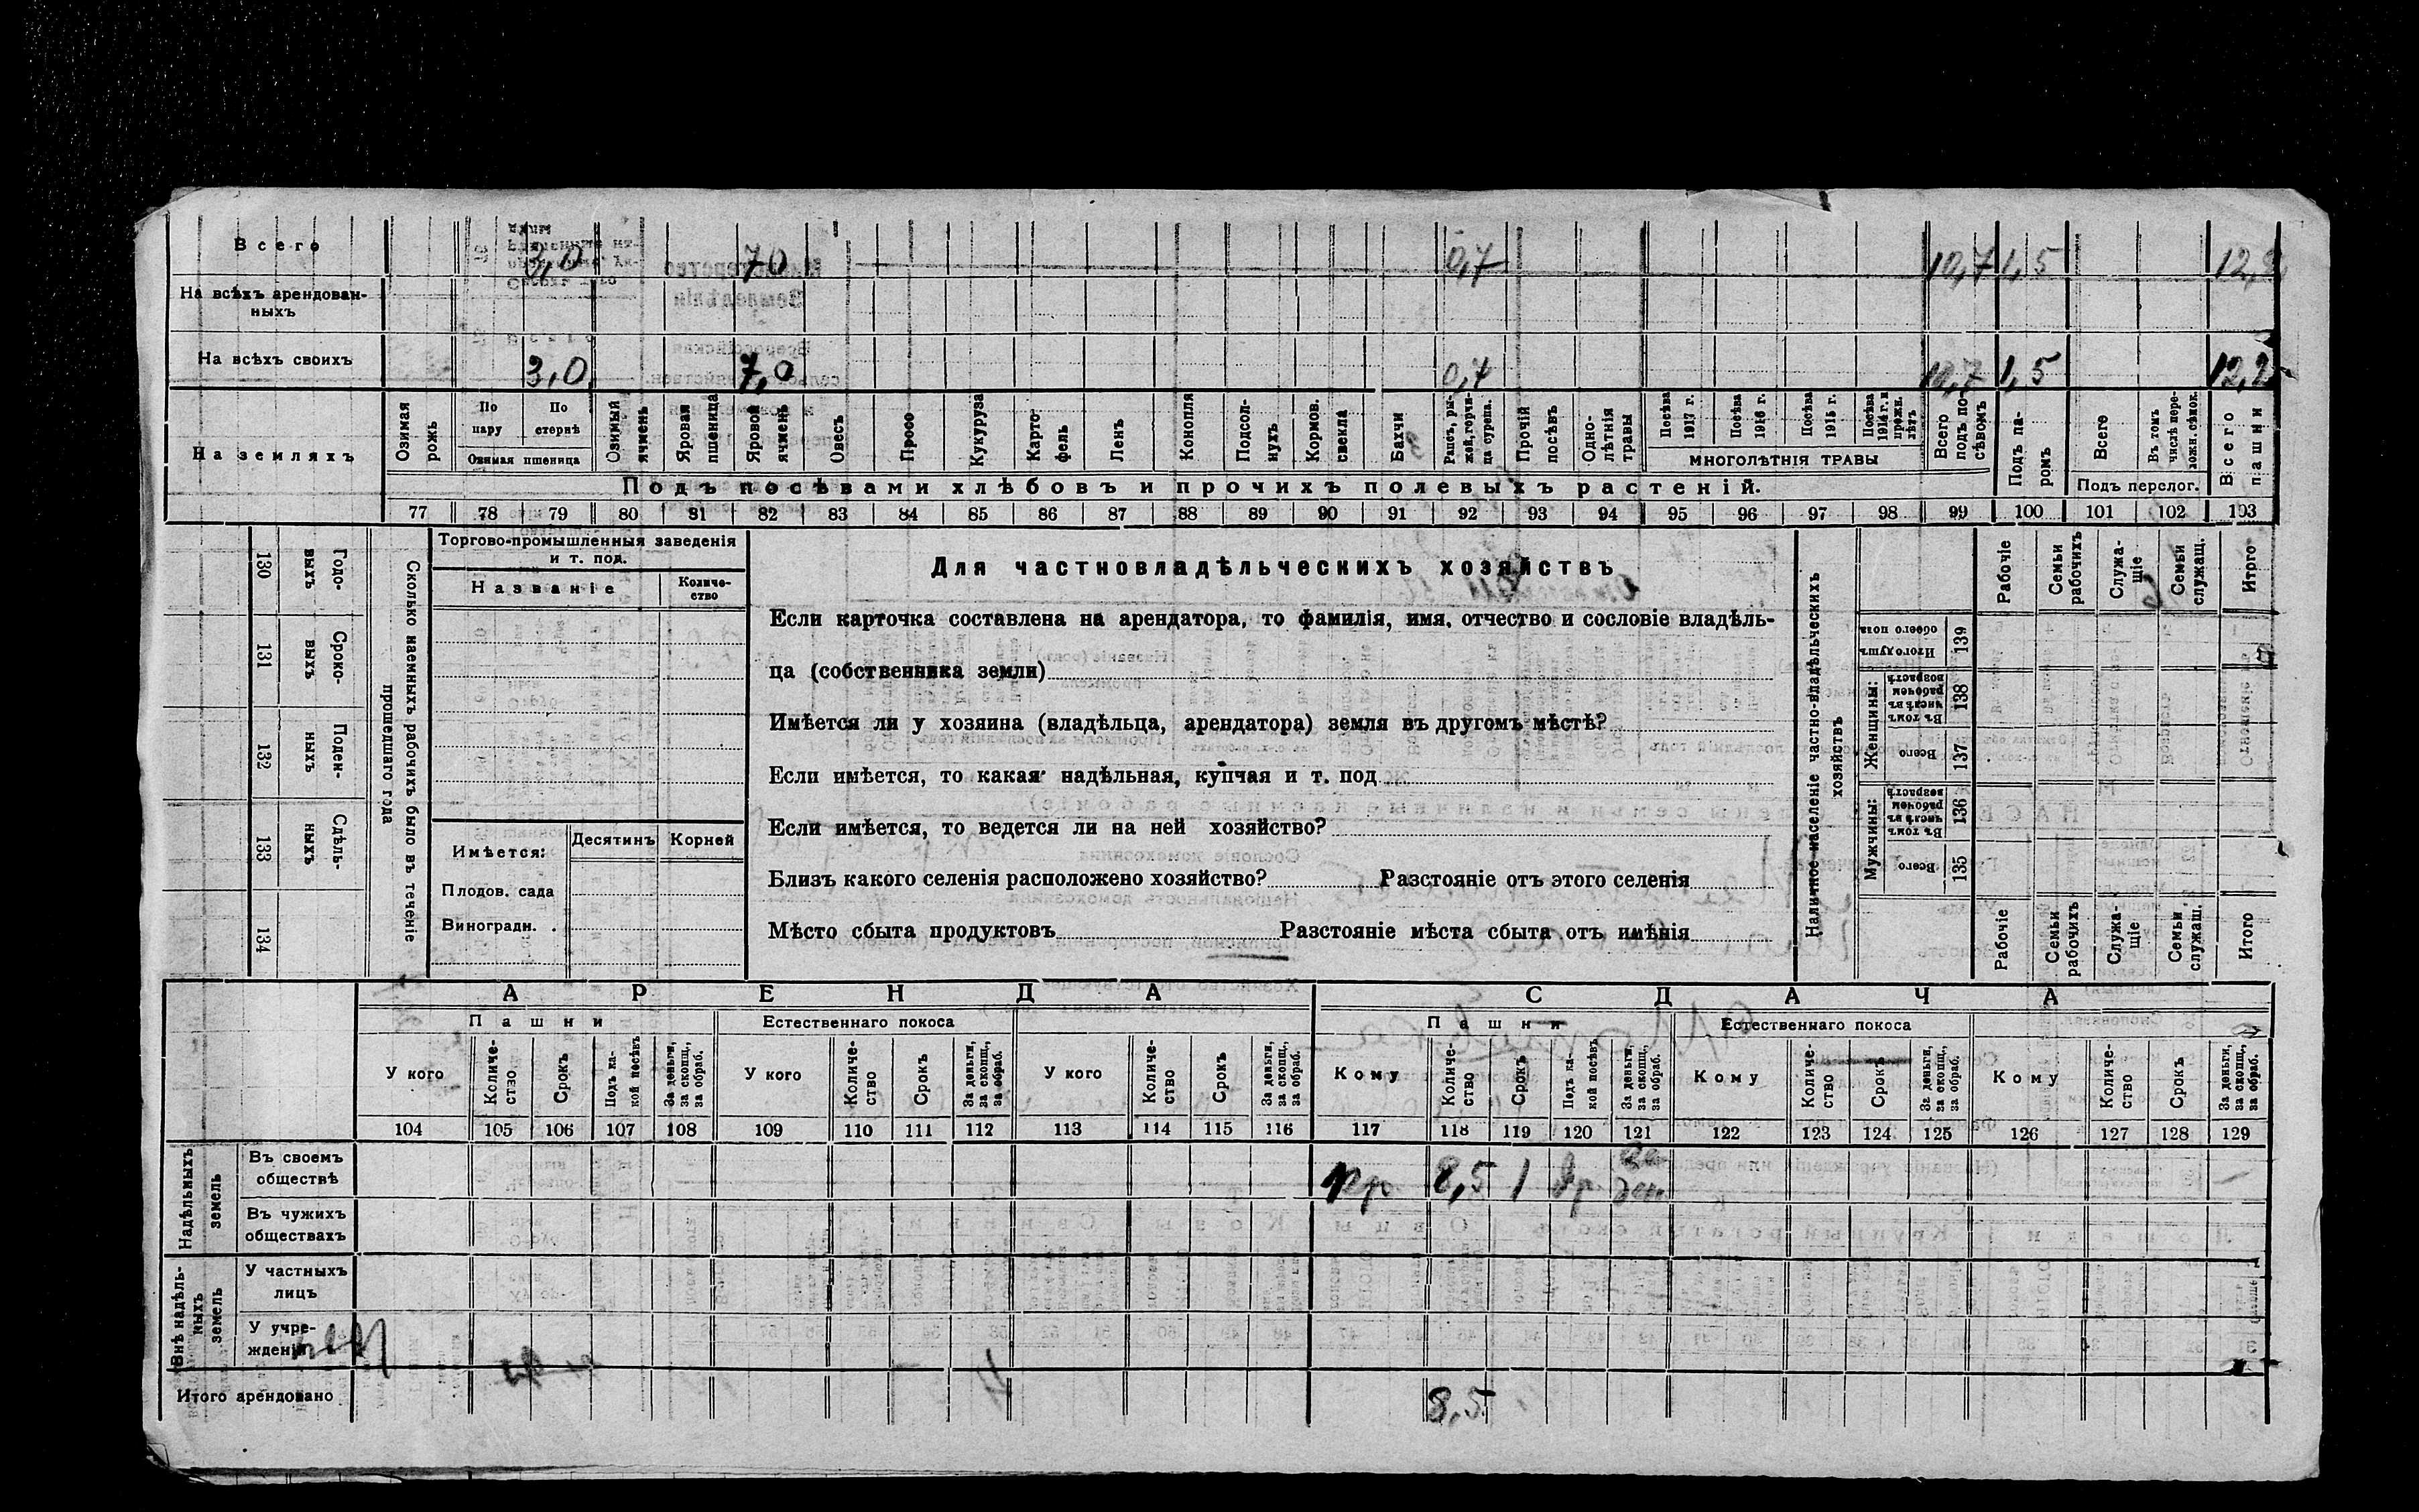 Всего 3,0 70 0,7 10,7 1,5 12,2
На всѣхъ арендован-
ныхъ
На всѣхъ своихъ 3,0 7,0 0,7 10,7 1,5 12,2
На земляхъ
Озимая рожь
По пару
По стернѣ
Озимая пшеница
Озимый ячмень
Яровая пшеница
Яровой ячмень
Овесъ
Просо
Кукуруза
Карто-
фель
Ленъ
Конопля
Подсол-
нухъ
Кормов.
свекла
Бахчи
Рапсъ, ры-
жей, горчи-
ца сурепа.
Прочій
посѣвъ
Одно-
лѣтнія
травы
Посѣва
1917 г.
Посѣва
1916 г.
Посѣва
1915 г.
Посѣва
1914 г. и
прежн.
лѣтъ
МНОГОЛѢТНІЯ ТРАВЫ
Всего
подъ по-
сѣвомъ
Подъ па-
ромъ
Всего
Въ томъ
числѣ пере-
ложн. сѣнок.
Подъ перелог.
Всего
пашни
Подъ посѣвами хлѣбовъ и прочихъ полевыхъ растеній.
77 78 79 80 81 82 83 84 85 86 87 88 89 90 91 92 93 94 95 96 97 98 99 100 101 102 103
130 Годо-
выхъ
131 Сроко-
выхъ
132 Поден-
ныхъ
133 Сдѣль-
ныхъ
134
Сколько наемныхъ рабочихъ было въ теченіе
прошедшаго года
Торгово-промышленныя заведенія
и т. под.
Названіе
Количе-
ство
Имѣется:
Десятинъ
Корней
Плодов. сада
Виноградн.
Для частновладѣльческихъ хозяйствъ
Если карточка составлена на арендатора, то фамилія, имя, отчество и сословіе владѣль-
ца (собственника земли)
Имѣется ли у хозяина (владѣльца, арендатора) земля въ другомъ мѣстѣ?
Если имѣется, то какая надѣльная, купчая и т. под
Если имѣется, то ведется ли на ней хозяйство?
Близъ какого селенія расположено хозяйство? Разстояніе отъ этого селенія
Мѣсто сбыта продуктовъ Разстояніе мѣста сбыта отъ имѣнія
Наличное населеніе частно-владѣльческихъ
хозяйствъ
Рабочіе
Семьи
рабочихъ
Служа-
щіе
Семьи
служащ.
Итого
Итого душъ
обоего пола
139
Женщины:
Въ томъ
числѣ въ
рабочем
возрастѣ
138
Всего
137
Мужчины:
Въ томъ
числѣ въ
рабочем
возрастѣ
136
Всего
135
Рабочіе
Семьи
рабочихъ
Служа-
щіе
Семьи
служащ.
Итого
АРЕНДА
СДАЧА
Пашни
Естественнаго покоса
Пашни
Естественнаго покоса
У кого
Количе-
ство
Срокъ
Подъ ка-
кой посѣвъ
За деньги,
за скопщ.,
за обраб.
У кого
Количе-
ство
Срокъ
За деньги,
за скопщ.,
за обраб.
У кого
Количе-
ство
Срокъ
За деньги,
за скопщ.,
за обраб.
Кому
Количе-
ство
Срокъ
Подъ ка-
кой посѣвъ
За деньги,
за скопщ.,
за обраб.
Кому
Количе-
ство
Срокъ
За деньги,
за скопщ.,
за обраб.
Кому
Количе-
ство
Срокъ
За деньги,
за скопщ.,
за обраб.
104 105 106 107 108 109 110 111 112 113 114 115 116 117 118 119 120 121 122 123 124 125 126 127 128 129
Надѣльныхъ
земель
Въ своемъ
обществѣ
8,5 1
Въ чужихъ
обществахъ
Внѣ надѣль-
ныхъ
земель
У частныхъ
лицъ
У учре-
жденій
Итого арендовано 8,5